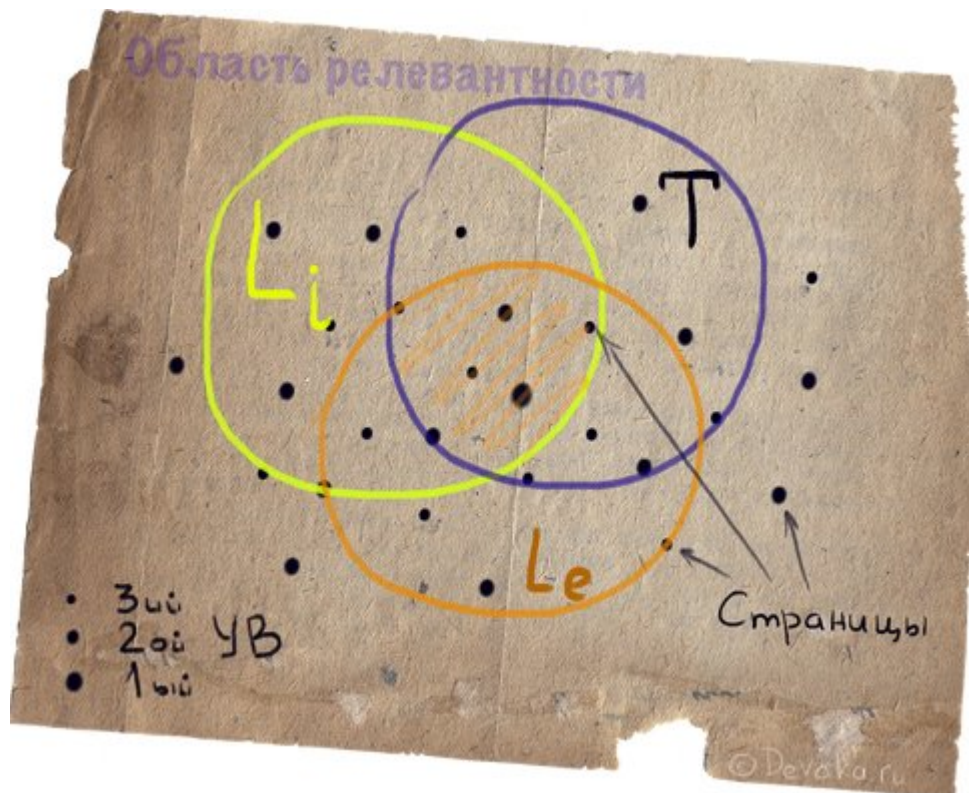 Область релевантности
Li
T
Le
Страницы
3ий
2ой УВ
1ый
©Devaka.ru